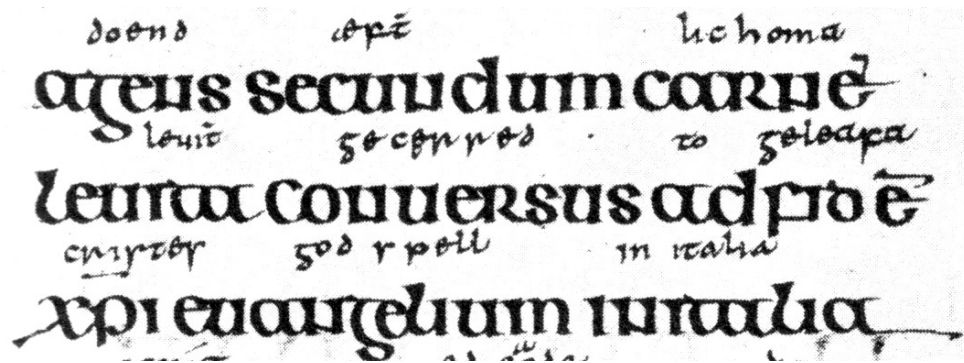 doend æft̄ lichoma
agens secundum carnē
leuit̄ gecerred to geleafa
leuita conuersus ad fidē
cristes godspell in italia
xpi euangelium in italia